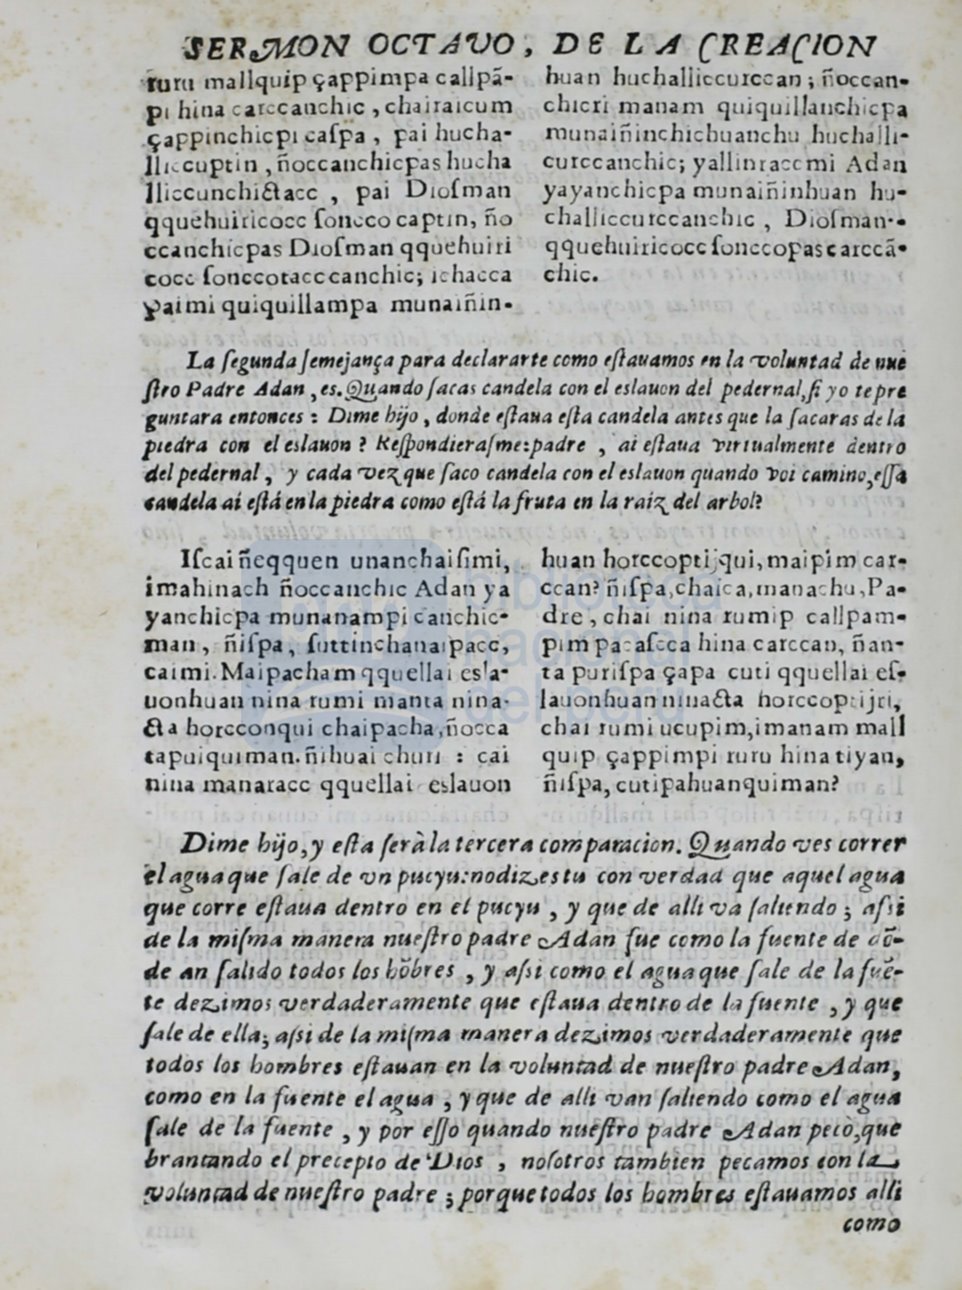 SERMON OCTAVO, DE LA CREACION
ruru mallquip çappimpa callpã-
pi hina carccanchic, chairaicum
çappinchicpi caſpa, pai hucha-
lliccuptin, ñoccanchicpas hucha
lliccunchiƈtacc, pai Dioſman
qquehuiricocc ſoncco captin, ño
ccanchicpas Dioſman qquehuiri
cocc ſonccotacc canchic; ichacca
paimi quiquillampa munaiñin-
huan huchalliccurccan; ñoccan-
chicri manam quiquillanchicpa
munaiñinchichuanchu huchalli-
curccanchic; yallinraccmi Adan
yayanchicpa munaiñinhuan hu-
challiccurccanchic, Dioſman-
qquehuiricocc ſonccopas carccã-
chic.
La ſegunda ſemejança para declararte como eſtauamos en la voluntad de nue
ſtro Padre Adan, es. Quando ſacas candela con el eslauon del pedernal, ſi yo te pre
guntara entonces: Dime hijo, donde eſtaua eſta candela antes que la ſacaras de la
piedra con el eslauon? Reſpondieraſme: padre, ai eſtaua virtualmente dentro
del pedernal, y cada vez que ſaco candela con el eslauon quando voi camino, eſſa
candela ai eſtá en la piedra como eſtá la fruta en la raiz del arbol?
Iſcai ñeqquen unanchaiſimi,
imahinach ñoccanchic Adan ya
yanchicpa munanampi canchic-
man, ñiſpa, ſuttinchanaipacc,
caimi. Maipacham qquellai esla-
uonhuan nina rumi manta nina-
ƈta horcconqui chaipacha, ñocca
tapuiquiman. ñihuai churi: cai
nina manaracc qquellai eslauon
huan horccoptijqui, maipim car-
ccan? ñiſpa, chaica, manachu, Pa-
dre, chai nina rumip callpam-
pim pacaſcca hina carccan, ñan-
ta puriſpa çapa cuti qquellai eſ-
lauonhuan ninaƈta horccoptijri,
chai rumi ucupim, imanam mall
quip çappimpi ruru hina tiyan,
ñiſpa, cutipahuanquiman?
Dime hijo, y eſta ſerà la tercera comparacion. Quando ves correr
el agua que ſale de vn pucyu: no dizes tu con verdad que aquel agua
que corre eſtaua dentro en el pucyu, y que de alli va ſaliendo; aſsi
de la miſma manera nueſtro padre Adan fue como la fuente de dõ-
de an ſalido todos los hõbres, y aſsi como el agua que ſale de la fuẽ-
te dezimos verdaderamente que eſtaua dentro de la fuente, y que
ſale de ella; aſsi de la miſma manera dezimos verdaderamente que
todos los hombres eſtauan en la voluntad de nueſtro padre Adan,
como en la fuente el agua, y que de alli van ſaliendo como el agua
ſale de la fuente, y por eſſo quando nueſtro padre Adan pecò, que
brantando el precepto de Dios, noſotros tambien pecamos con la
voluntad de nueſtro padre; porque todos los hombres eſtauamos alli
como
biblioteca
nacional
del perú